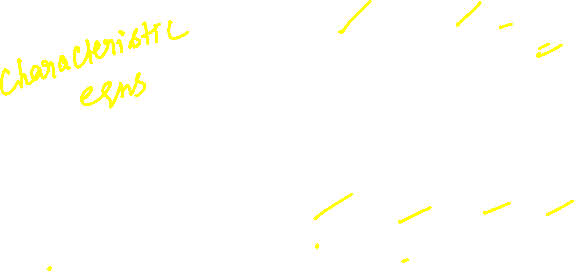 characteristic
eqns